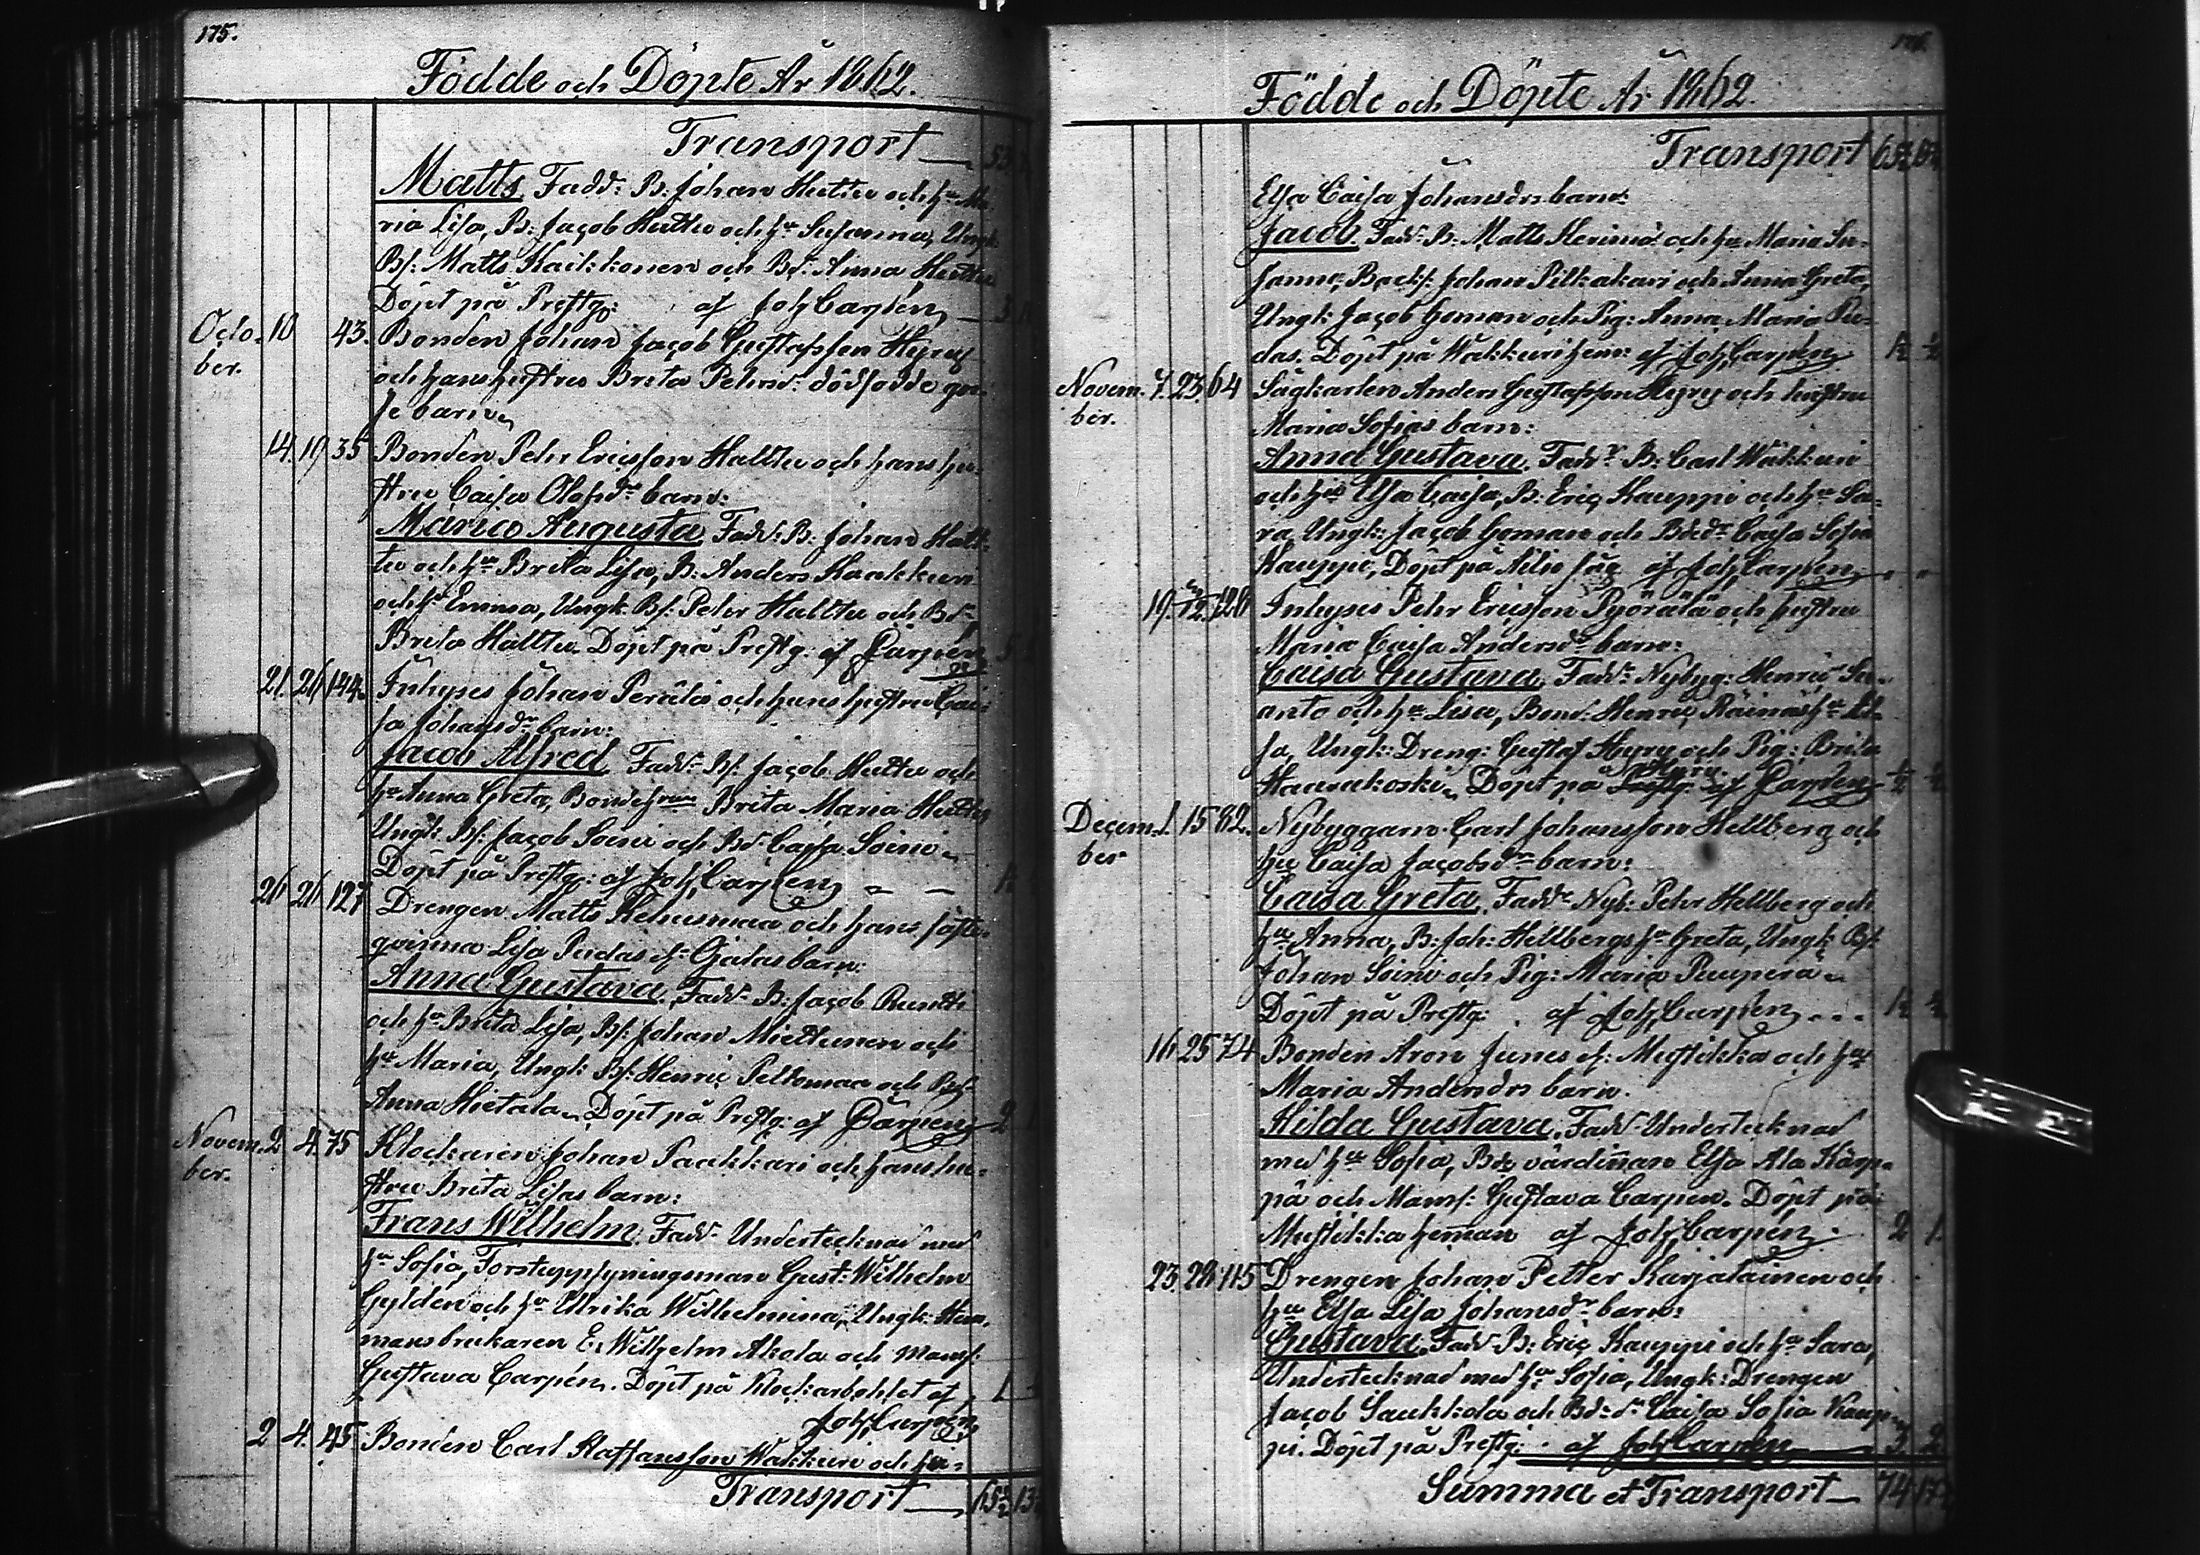 175.
Födde och Döpte År 1862.
Transport
Matts. Fadd: B: Johan Huttu och hu Ma-
ria Lisa, B: Jacob Huttu och hu Susanna, Ungk:
Bs: Matts Kaikkonen och Bd: Anna Huttu
Döpt på Prestg: af Joh Carpén
Octo- 10 43. Bonden Johan Jacob Gustafsson Hyry
ber. och hans hustrus Brita Pehrsdr dödfödde gos-
se barn
14. 19. 35 Bonden Pehr Ericsson Halttu och hans hu-
stru Caisa Olofsdr barn:
Maria Augusta. Fadd: B: Johan Halt-
tu och hu Brita Lisa, B: Anders Kaakkuri
och hu Emma, Ungk: Bs: Pehr Halttu och Bdr
Brita Halttu. Döpt på Prestg: af Carpén
21. 26. 144. Inhyses Johan Perälä och hans hustru Cai-
sa Johansdr barn:
Jacob Alfred. Fadd: Bs: Jacob Huttu och
hu Anna Greta, Brita Maria Huttu
Ungk: Bs: Jacob Soini och Bd: Caisa Soini
Döpt på Prestg: af Joh Carpén
26 26 127 Drengen Matts Kehusmaa och hans fäste-
qvinna Lisa Pudas barn:
Anna Gustava. Fadd: B: Jacob Runtti
och hu Brita Lisa, Bs: Johan Miettunen och
hu Maria, Ungk: Bs: Henric Peltomaa och
Anna Hietala. Döpt på Prestg: af Carpén 2
Novem- 2. 4. 75 Klockaren Johan Paakkari och hans hu-
ber. stru Brita Lisas barn:
Frans Wilhelm. Fadd: Undertecknad med
hu Sofia, Forstuppsyningsman Gust: Wilhelm
Gyldén och hu Ulrika Wilhelmina, Ungk: Hem-
mansbrukaren E: Wilhelm Akola och Mams:
Gustava Carpén. Döpt på Klockarbohlet af
Joh Carpén
2 4. 45. Bonden Carl Staffansson Wakkuri och hu-
Transport 65½ 13
176.
Födde och Döpte År 1862.
Transport 65½
Elsa Caisa Johansdrs barn:
Jacob. Fadd: B: Matts och hu Maria Su-
sanna, Backs: Johan Pitkakari och Anna Greta,
Ungk: Jacob Goman och Pig: Anna Maria Pu-
das. Döpt på Wakkuri hem: af Joh Carpén 1½ ½
Novem- 7. 23. 64 Sågkarlen Anders Gustafsson Hyry och hustru
ber. Maria Sofias barn:
Anna Gustava. Fadd: B: Carl Wakkuri
och hu Elsa Caisa, B: Eric Kauppi och hu Sa-
ra, Ungk: Jacob Goman och Bdr Caisa Sofia
Kauppi, Döpt på såg af Joh Carpén
19. 120 Inhyses Pehr Ericsson Pyörälä och hustru
Maria Caisa Andersdr barn:
Caisa Gustava. Fadd: Nybyg: Henric Su-
anto och hu Lisa, Bond: Henric Räinäs hu Li-
sa, Ungk: Dreng: Gustaf Hyry och Pig: Brita
Haarakoski. Döpt på Hyry af Carpén ½ ½
Decem- 1. 15 82. Nybyggarn Carl Johansson Hellberg och
ber hu Caisa Jacobsdr barn:
Caisa Greta. Fadd: Nyb: Pehr Hellberg och
hu Anna, B: Joh: Hellbergs hu Greta, Ungk: Bs:
Johan Soini och Pig: Maria Puupera
Döpt på Prestg: af Joh Carpén 1½ ½
16 25 74 Bonden Aron Junes Mustikka och hu
Maria Andersdrs barn.
Hilda Gustava. Fadd: Undertecknad
med hu Sofia, värdinnan Elsa Ala Kärp-
pä och Mams: Gustava Carpén. Döpt på
Mustikka heman af Joh Carpén. 2 1.
23. 28. 115 Drengen Johan Petter Karjalainen och
hu Elsa Lisa Johansdr barn:
Gustava. Fadd: B: Eric Kauppi och hu Sara,
Undertecknad med hu Sofia, Ungk: Drengen
Jacob Saukkola och Bdr Caisa Sofia Kaup-
pi. Döpt på Prestg: af Joh Carpén 3 2
Summa et Transport 74 17